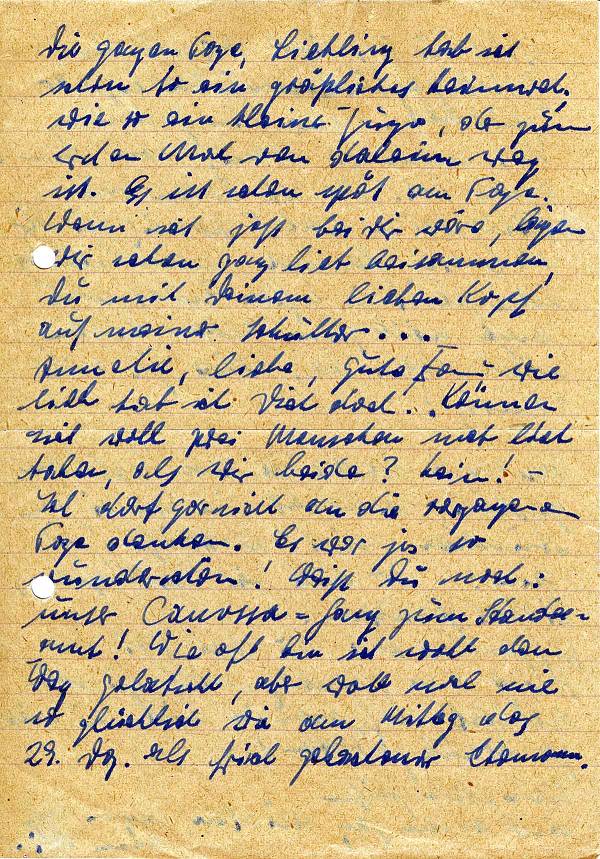 Die ganzen Tage, Liebling hab ich
schon so ein gräßliches Heimweh,
wie so ein kleiner Junge, der zum
ersten Mal von daheim weg
ist. Es ist schon spät am Tage.
Wenn ich jetzt bei Dir wäre, lägen
wir schon ganz lieb beisammen,
Du mit Deinem lieben Kopf
auf meiner Schulter....
Annelie, liebe, gute Frau wie
lieb hab ich Dich doch. Können
sich wohl zwei Menschen mehr lieb
haben, als wir beide? Nein! –
Ich darf gar nicht an die vergangenen
Tage denken. Es war ja so
wunderschön! Weißt Du noch:
unser Canossa=Gang zum Standes=
amt! Wie oft bin ich wohl den
Weg gelatscht, aber wohl noch nie
so glücklich wie am Mittag des
29. Dez. als frisch gebackener Ehemann.